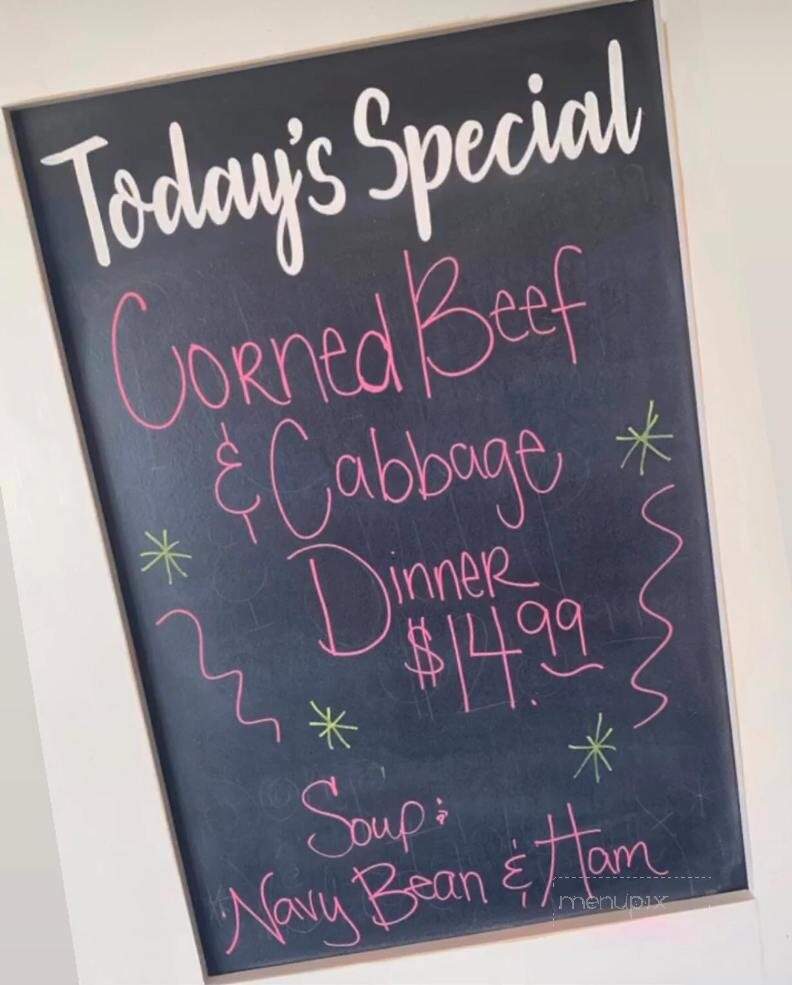 Today's Special
Corned Beef
& Cabbage
Dinner
$14.99
Soup:
Navy Bean & Ham
menupix